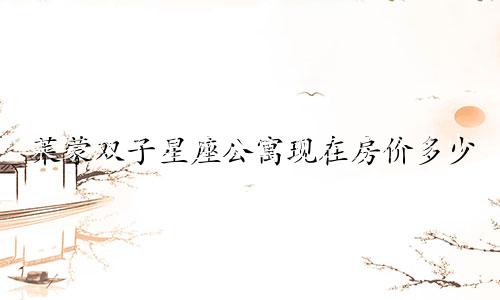 莱蒙双子星座公寓现在房价多少